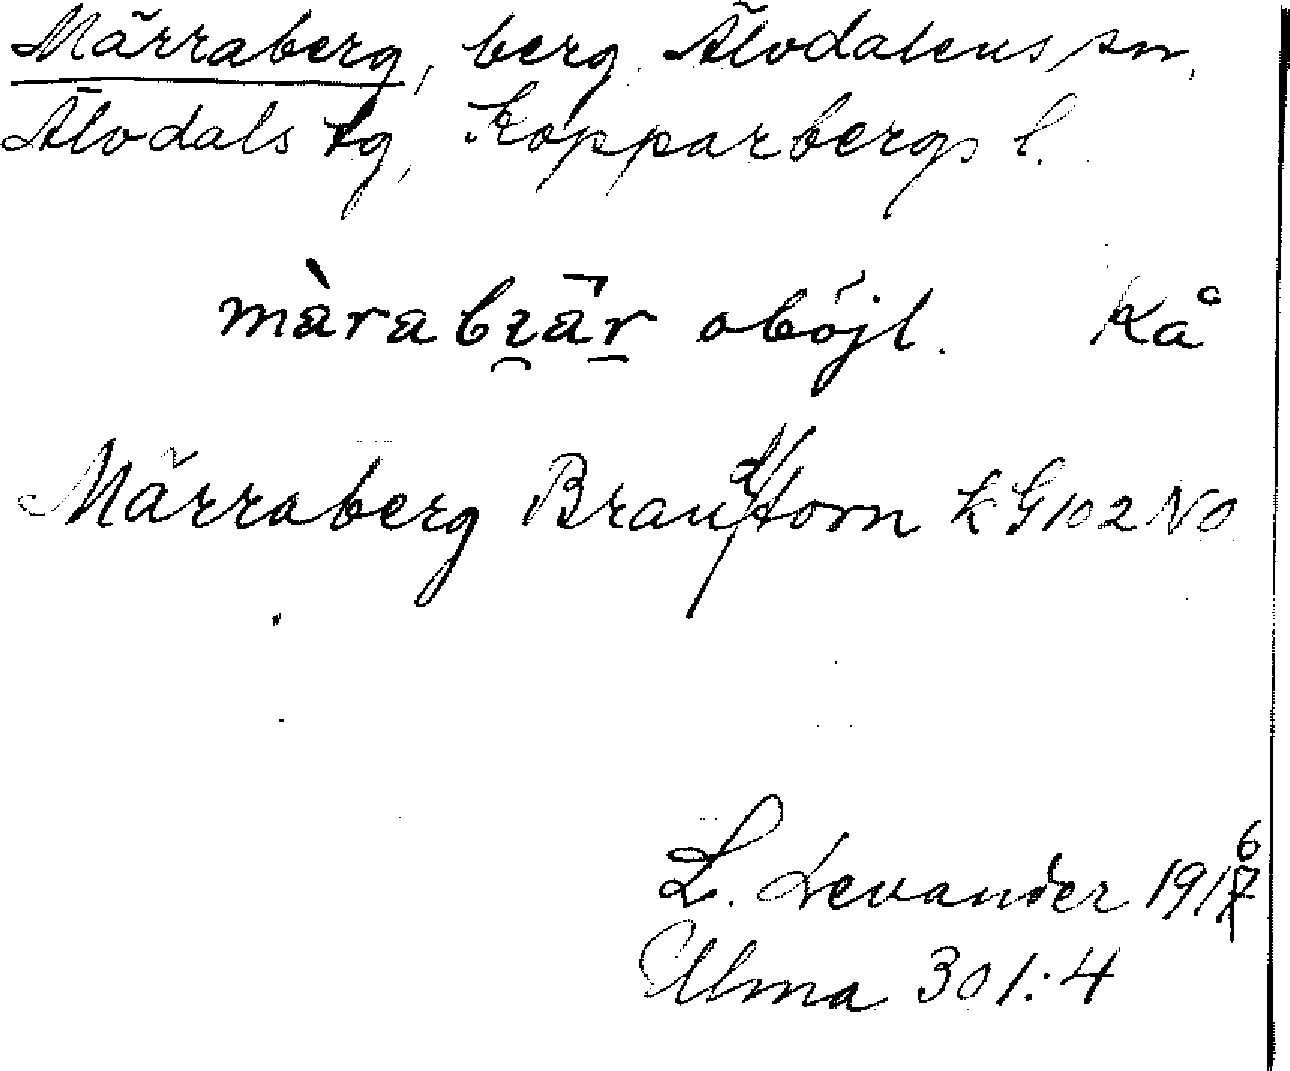 Märraberg, berg. Älvdalens sn,
Älvdals tg, Kopparbergs l.
màrabɪ̯ār̯ oböjl. Kå
Märraberg KG102NO
L. Levander 1916
Ulma 301:4